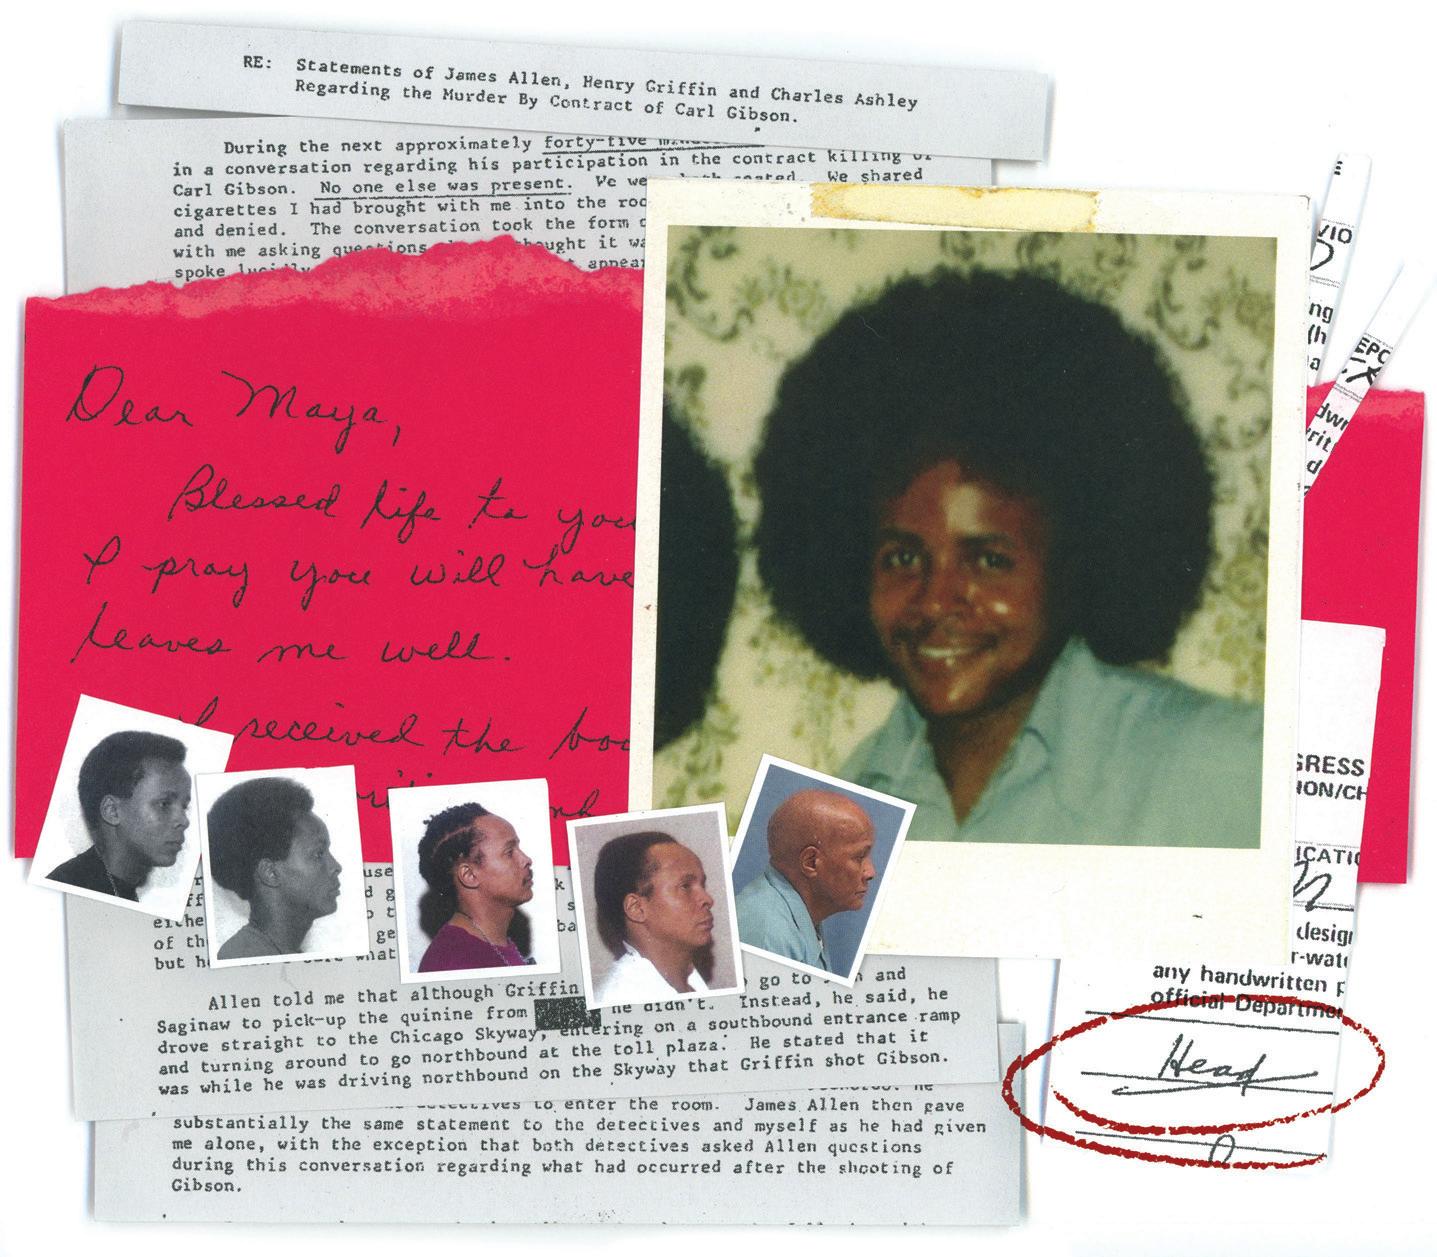 RE: Statements of James Allen, Henry Griffin and Charles Ashley
Regarding the Murder By Contract of Carl Gibson.
During the next approximately forty-five
in a conversation regarding his participation in the contract killing of
Carl Gibson. No one else was present. We we both seated. We shared
cigarettes I had brought with me into the roo
and denied. The conversation took the form o
with me asking questions ought it wa
spoke lucidly appear
Dear Maya,
Blessed life to you
I pray you will have
leaves me well.
I received the boo
use
d g
eithe
of th ge ba
but he sure what
Allen told me that although Griffin go to and
Saginaw to pick-up the quinine from he didn't. Instead, he said, he
drove straight to the Chicago Skyway, entering on a southbound entrance ramp
and turning around to go northbound at the toll plaza. He stated that it
was while he was driving northbound on the Skyway that Griffin shot Gibson.
he
detectives to enter the room. James Allen then gave
substantially the same statement to the detectives and myself as he had given
me alone, with the exception that both detectives asked Allen questions
during this conversation regarding what had occurred after the shooting of
Gibson.
VIO
ng
(h
a
EPO
dwr
rit
d
GRESS
ION/CH
ICATIO
desig
r-wate
any handwritten p
official Departme
Head